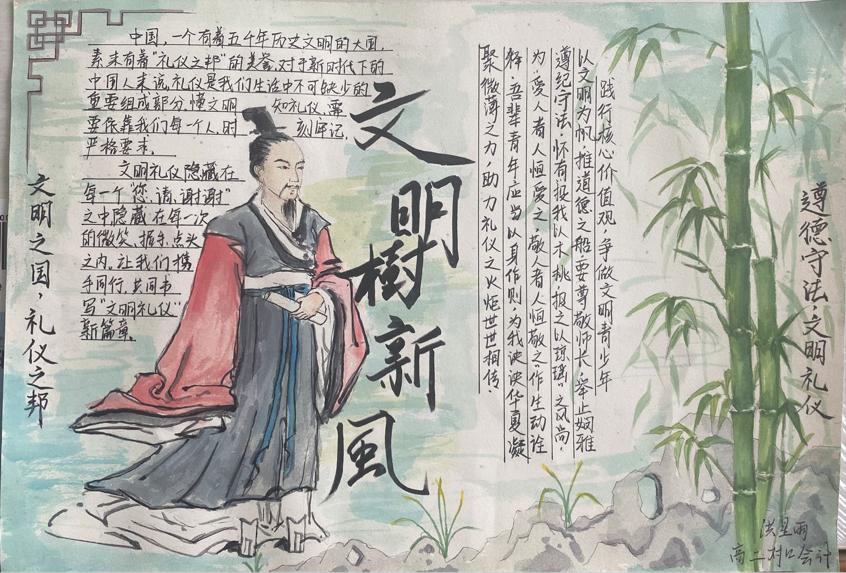 中国，一个有着五千年历史文明的大国，
素来有着“礼仪之邦”的美誉，对于新时代下的
中国人来说，礼仪是我们生活中不可缺少的
重要组成部分，懂文明 知礼仪，需
要依靠我们每一个人，时 刻牢记，
严格要求。
文明礼仪隐藏在
每一个“您，请，谢谢”
之中隐藏在每一次
的微笑、握手、点头
之内。让我们携
手同行，共同书
写“文明礼仪”
新篇章。
文明之国，礼仪之邦
文明樹新風
践行核心价值观，争做文明青少年
以文明为帆，推道德之船要尊敬师长，举止娴雅
遵纪守法，怀有投我以木桃，报之以琼瑶”之风尚，
为，爱人者人恒爱之，敬人者人恒敬之”作生动诠
释，吾辈青年应当以身作则，为我泱泱华夏凝
聚微薄之力，助力礼仪之火炬世世相传。
遵德守法，文明礼仪
高二村口会计